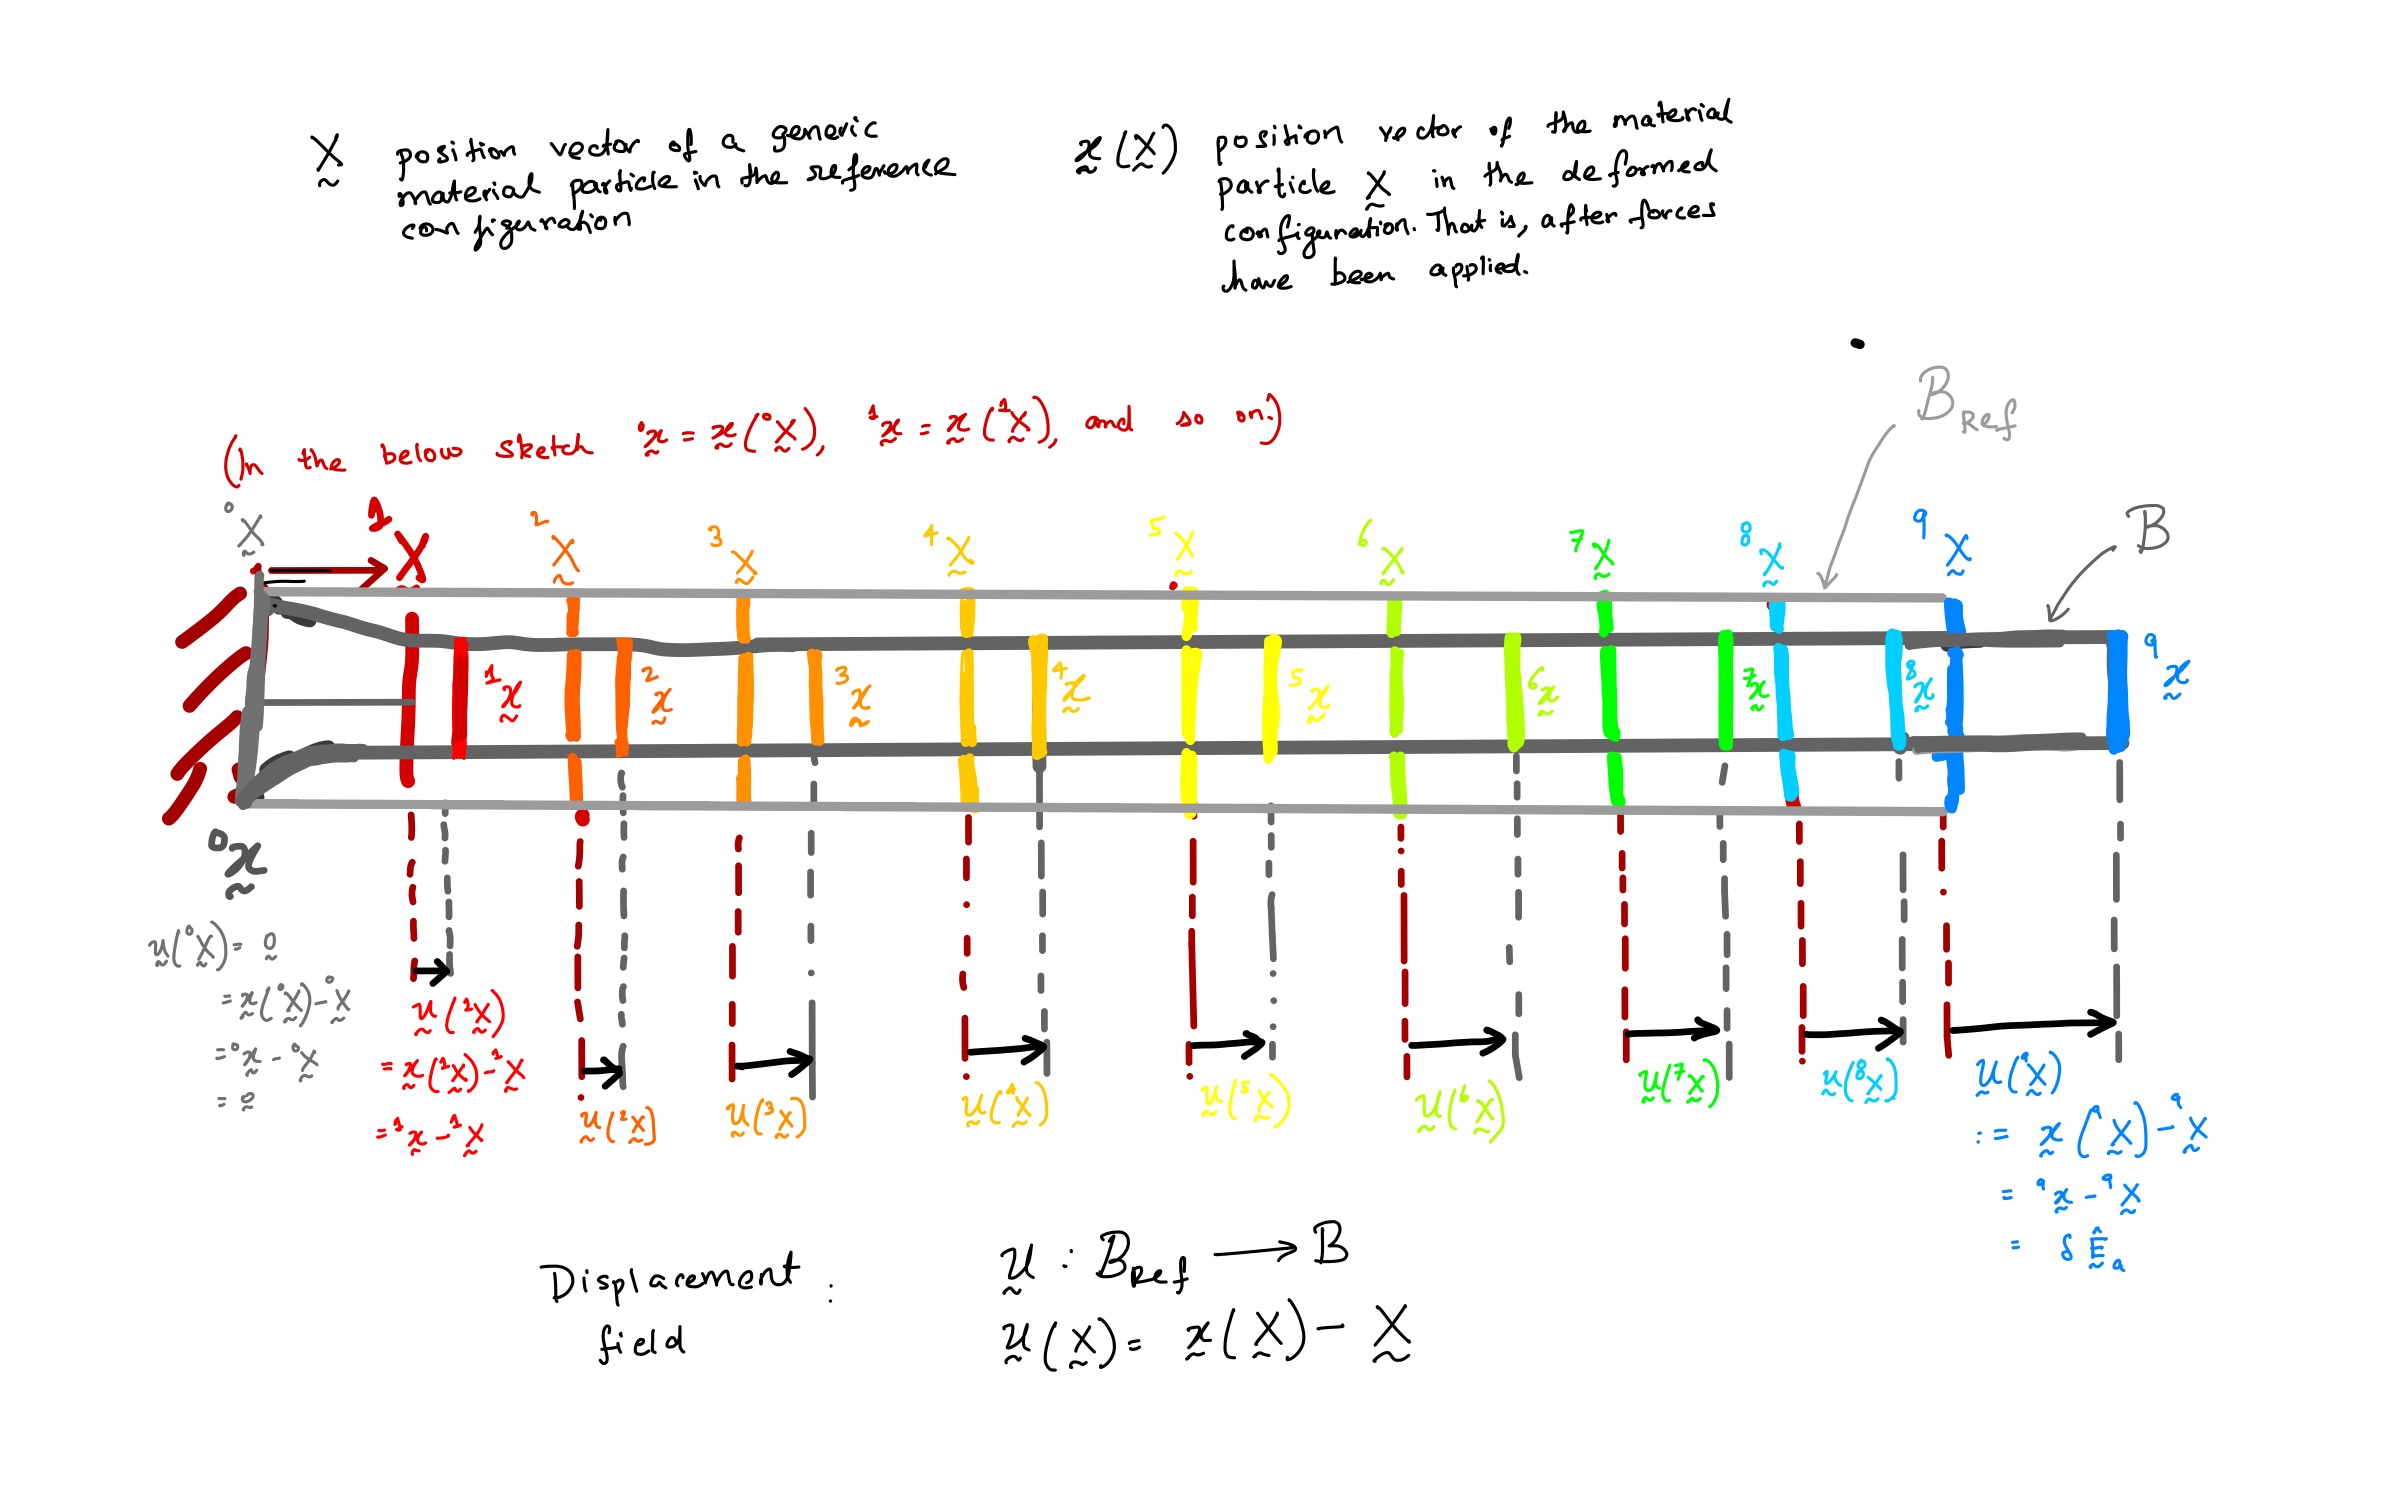 X position vector of a generic
material particle in the reference
configuration
x(X) position vector of the material
particle X in the deformed
configuration. That is, after forces
have been applied.
(In the below sketch ⁰x = x(⁰X), ¹x = x(¹X), and so on.)
B_Ref
B
⁰X ¹X ²X ³X ⁴X ⁵X ⁶X ⁷X ⁸X ⁹X
¹x ²x ³x ⁴x ⁵x ⁶x ⁷x ⁸x ⁹x
⁰x
u(⁰X) = 0
= x(⁰X) - ⁰X
= ⁰x - ⁰X
= 0
u(¹X)
= x(¹X) - ¹X
= ¹x - ¹X
u(²X)
u(³X)
u(⁴X)
u(⁵X)
u(⁶X)
u(⁷X)
u(⁸X)
u(⁹X)
:= x(⁹X) - ⁹X
= ⁹x - ⁹X
= δ Ê_a
Displacement
field :
u : B_Ref → B
u(X) = x(X) - X